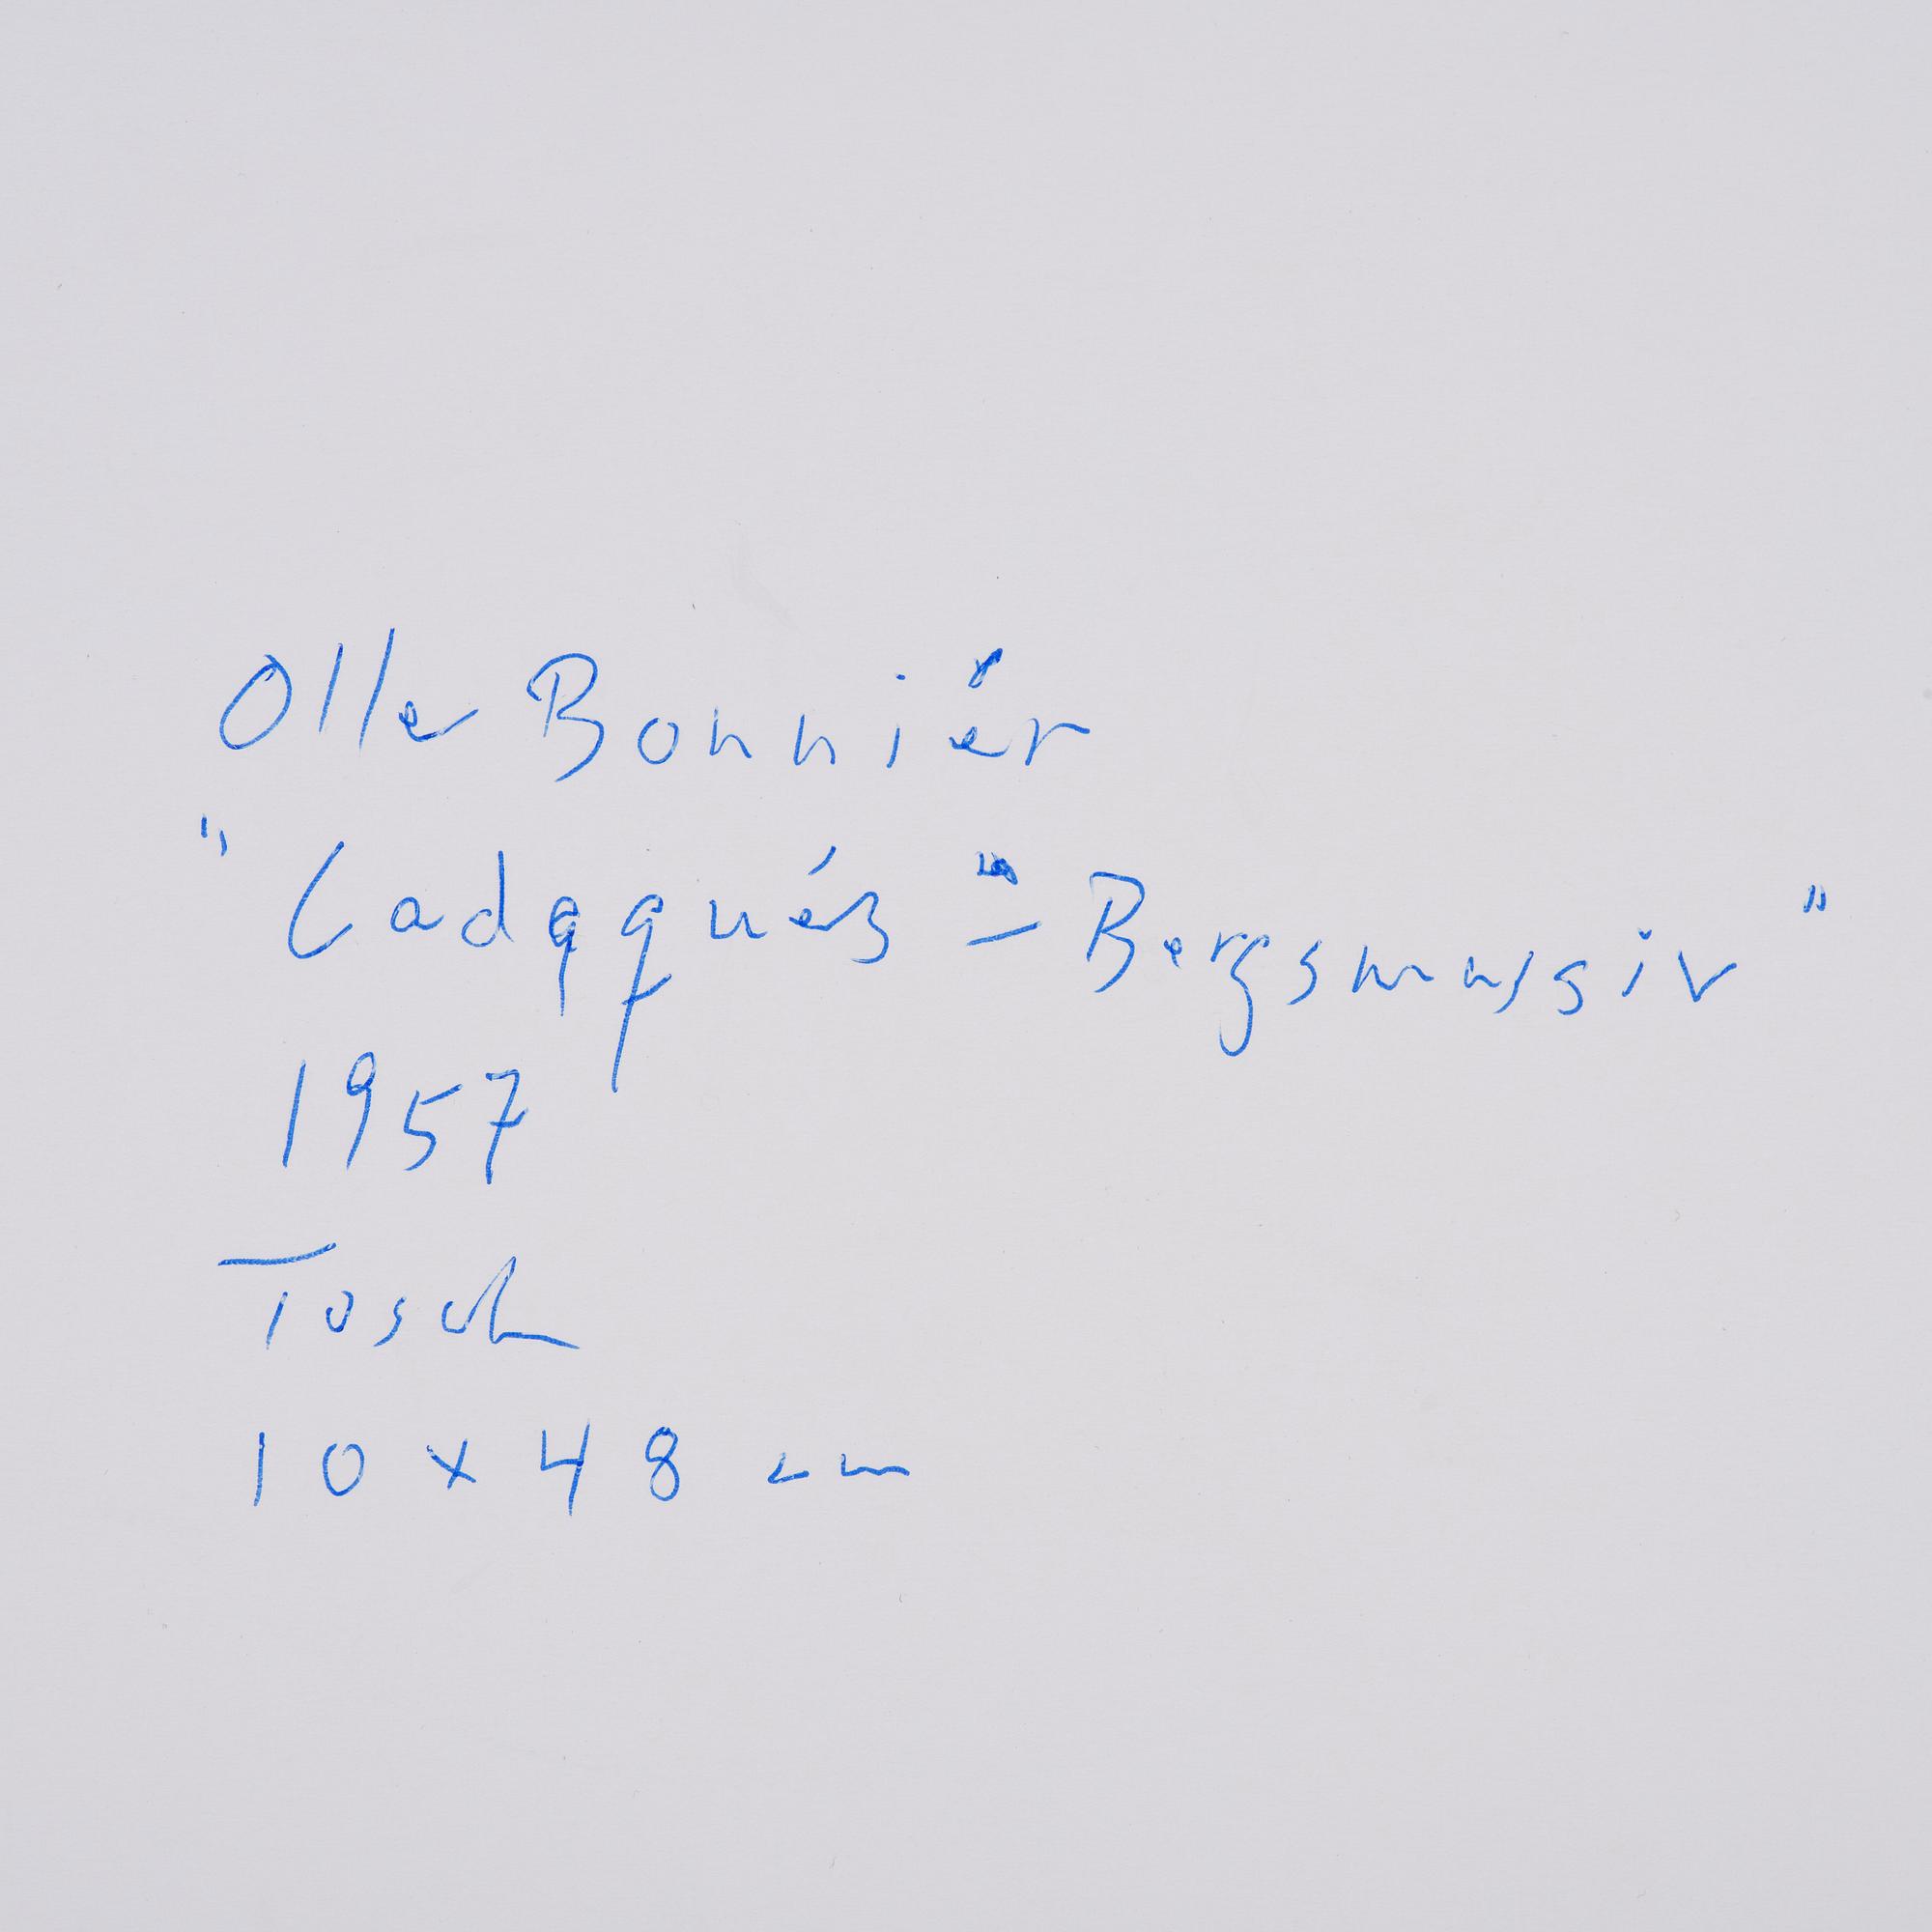 Olle Bonniér
"Cadaqués - Bergsmassiv"
1957
Tusch
10 x 48 cm